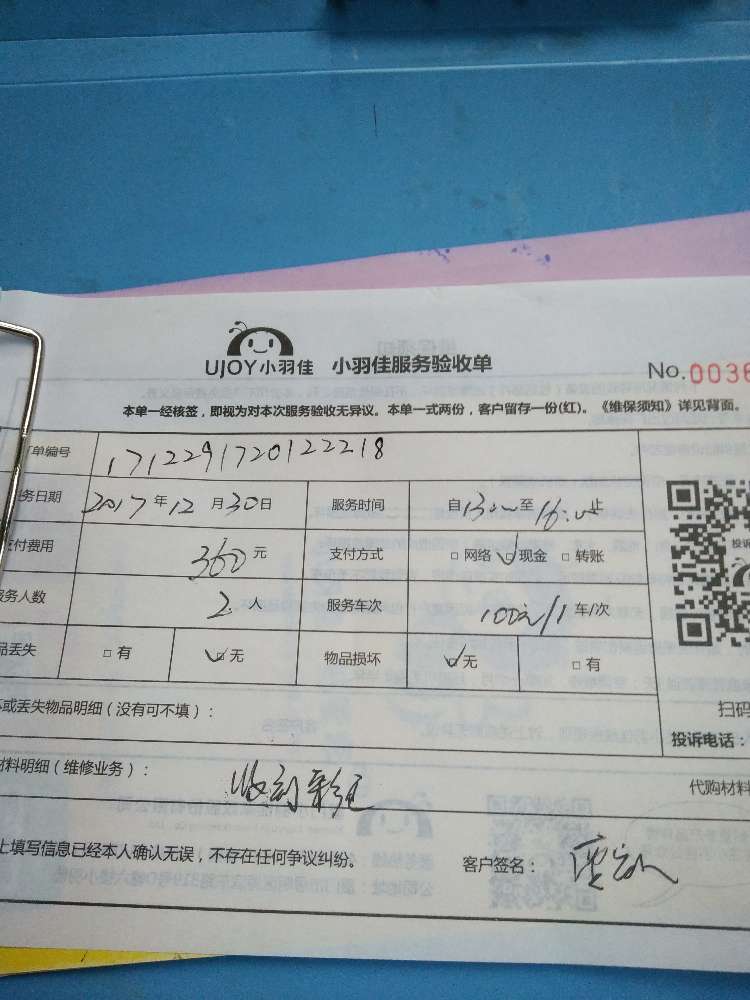 UJOY小羽佳 小羽佳服务验收单
No.0036
本单一经核签，即视为对本次服务验收无异议。本单一式两份，客户留存一份(红)。《维保须知》详见背面。
单编号 1712291720122218
务日期 2017年12月30日 服务时间 自13:00至16:00止
付费用 360元 支付方式 □网络 ☑现金 □转账
服务人数 2人 服务车次 100元/1车/次
品丢失 □有 ☑无 物品损坏 ☑无 □有
或丢失物品明细（没有可不填）： 扫码
投诉电话：
材料明细（维修业务）： 代购材料
上填写信息已经本人确认无误，不存在任何争议纠纷。 客户签名：